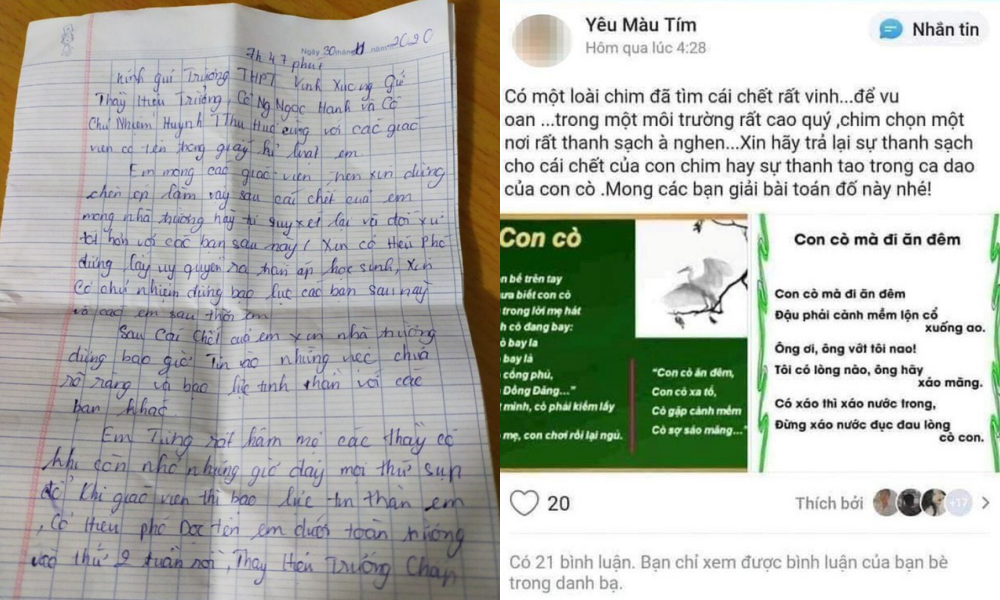 Ngày 30 tháng 11 năm 2020
7h 47 phút
Kính gửi Trường THPT Vĩnh Xương, Gửi
Thầy Hiệu Trưởng, Cô Ng Ngọc Hạnh và Cô
Chủ Nhiệm Huỳnh T Thu Huệ cùng với các giáo
viên có tên trong giấy kỉ luật em
Em mong các giáo viên, nên xin đừng
chèn ép lắm vay sau cái chết của em
mong nhà trường hãy tự suy xét lại và đối xử
tốt hơn với các bạn sau này! Xin cô Hiệu Phó
đừng lấy uy quyền ra đàn áp học sinh, xin
Cô chủ nhiệm đừng bạo lực các bạn sau này
và các em sau thời em
Sau cái chết của em xin nhà trường
đừng bao giờ Tin vào những việc chưa
rõ ràng và bạo lực tinh thần với các
bạn khác
Em Từng rất hâm mộ các thầy cô
khi còn nhỏ những giờ đây mọi thứ sụp
đổ Khi giáo viên thì bạo lực tin thần em
, Cô Hiệu phó Đọc tên em dưới toàn trường
vào thứ 2 tuần rồi, Thầy Hiệu Trưởng Chan
Yêu Màu Tím
Hôm qua lúc 4:28
Nhắn tin
Có một loài chim đã tìm cái chết rất vinh...để vu
oan ...trong một môi trường rất cao quý ,chim chọn một
nơi rất thanh sạch à nghen...Xin hãy trả lại sự thanh sạch
cho cái chết của con chim hay sự thanh tao trong ca dao
của con cò .Mong các bạn giải bài toán đố này nhé!
Con cò
n bế trên tay
ưa biết con cò
trong lời mẹ hát
h cò đang bay:
ò bay la
bay lả
công phủ,
Đồng Đăng..."
mình, cò phải kiếm lấy
mẹ, con chơi rồi lại ngủ.
"Con cò ăn đêm,
Con cò xa tổ,
Cò gặp cành mềm
Cò sợ xáo măng..."
Con cò mà đi ăn đêm
Con cò mà đi ăn đêm
Đậu phải cành mềm lộn cổ
xuống ao.
Ông ơi, ông vớt tôi nao!
Tôi có lòng nào, ông hãy
xáo măng.
Có xáo thì xáo nước trong,
Đừng xáo nước đục đau lòng
cò con.
20
Thích bởi
+17
Có 21 bình luận. Bạn chỉ xem được bình luận của bạn bè
trong danh bạ.